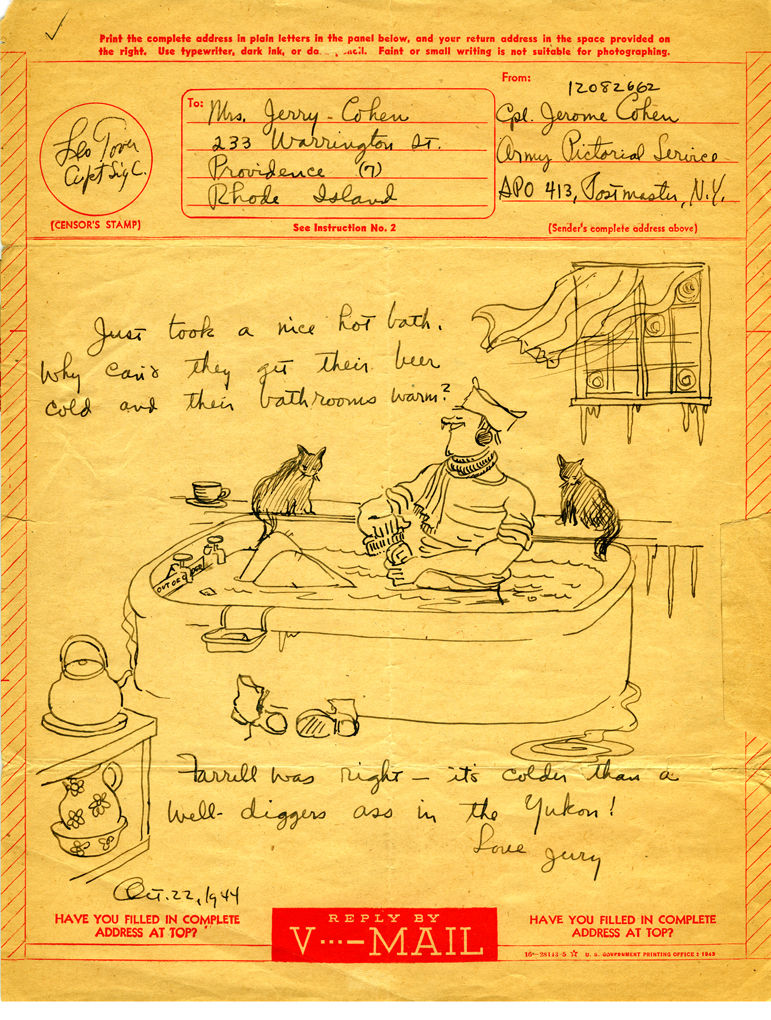 Print the complete address in plain letters in the panel below, and your return address in the space provided on
the right. Use typewriter, dark ink, or pencil. Faint or small writing is not suitable for photographing.
From:
12082662
To:
Mrs. Jerry - Cohen
233 Warrington St.
Providence (7)
Rhode Island
Cpl. Jerome Cohen
Army Pictorial Service
APO 413, Postmaster, N.Y.
Leo Tover
Capt Sig C.
[CENSOR'S STAMP]
See Instruction No. 2
(Sender's complete address above)
Just took a nice hot bath.
Why can't they get their beer
cold and their bathrooms warm?
OUT OF
Farrell was right — it's colder than a
well-diggers ass in the Yukon!
Love Jerry
Oct. 22, 1944
HAVE YOU FILLED IN COMPLETE
ADDRESS AT TOP?
REPLY BY
V···—MAIL
HAVE YOU FILLED IN COMPLETE
ADDRESS AT TOP?
16—28143-5 ☆ U. S. GOVERNMENT PRINTING OFFICE : 1943